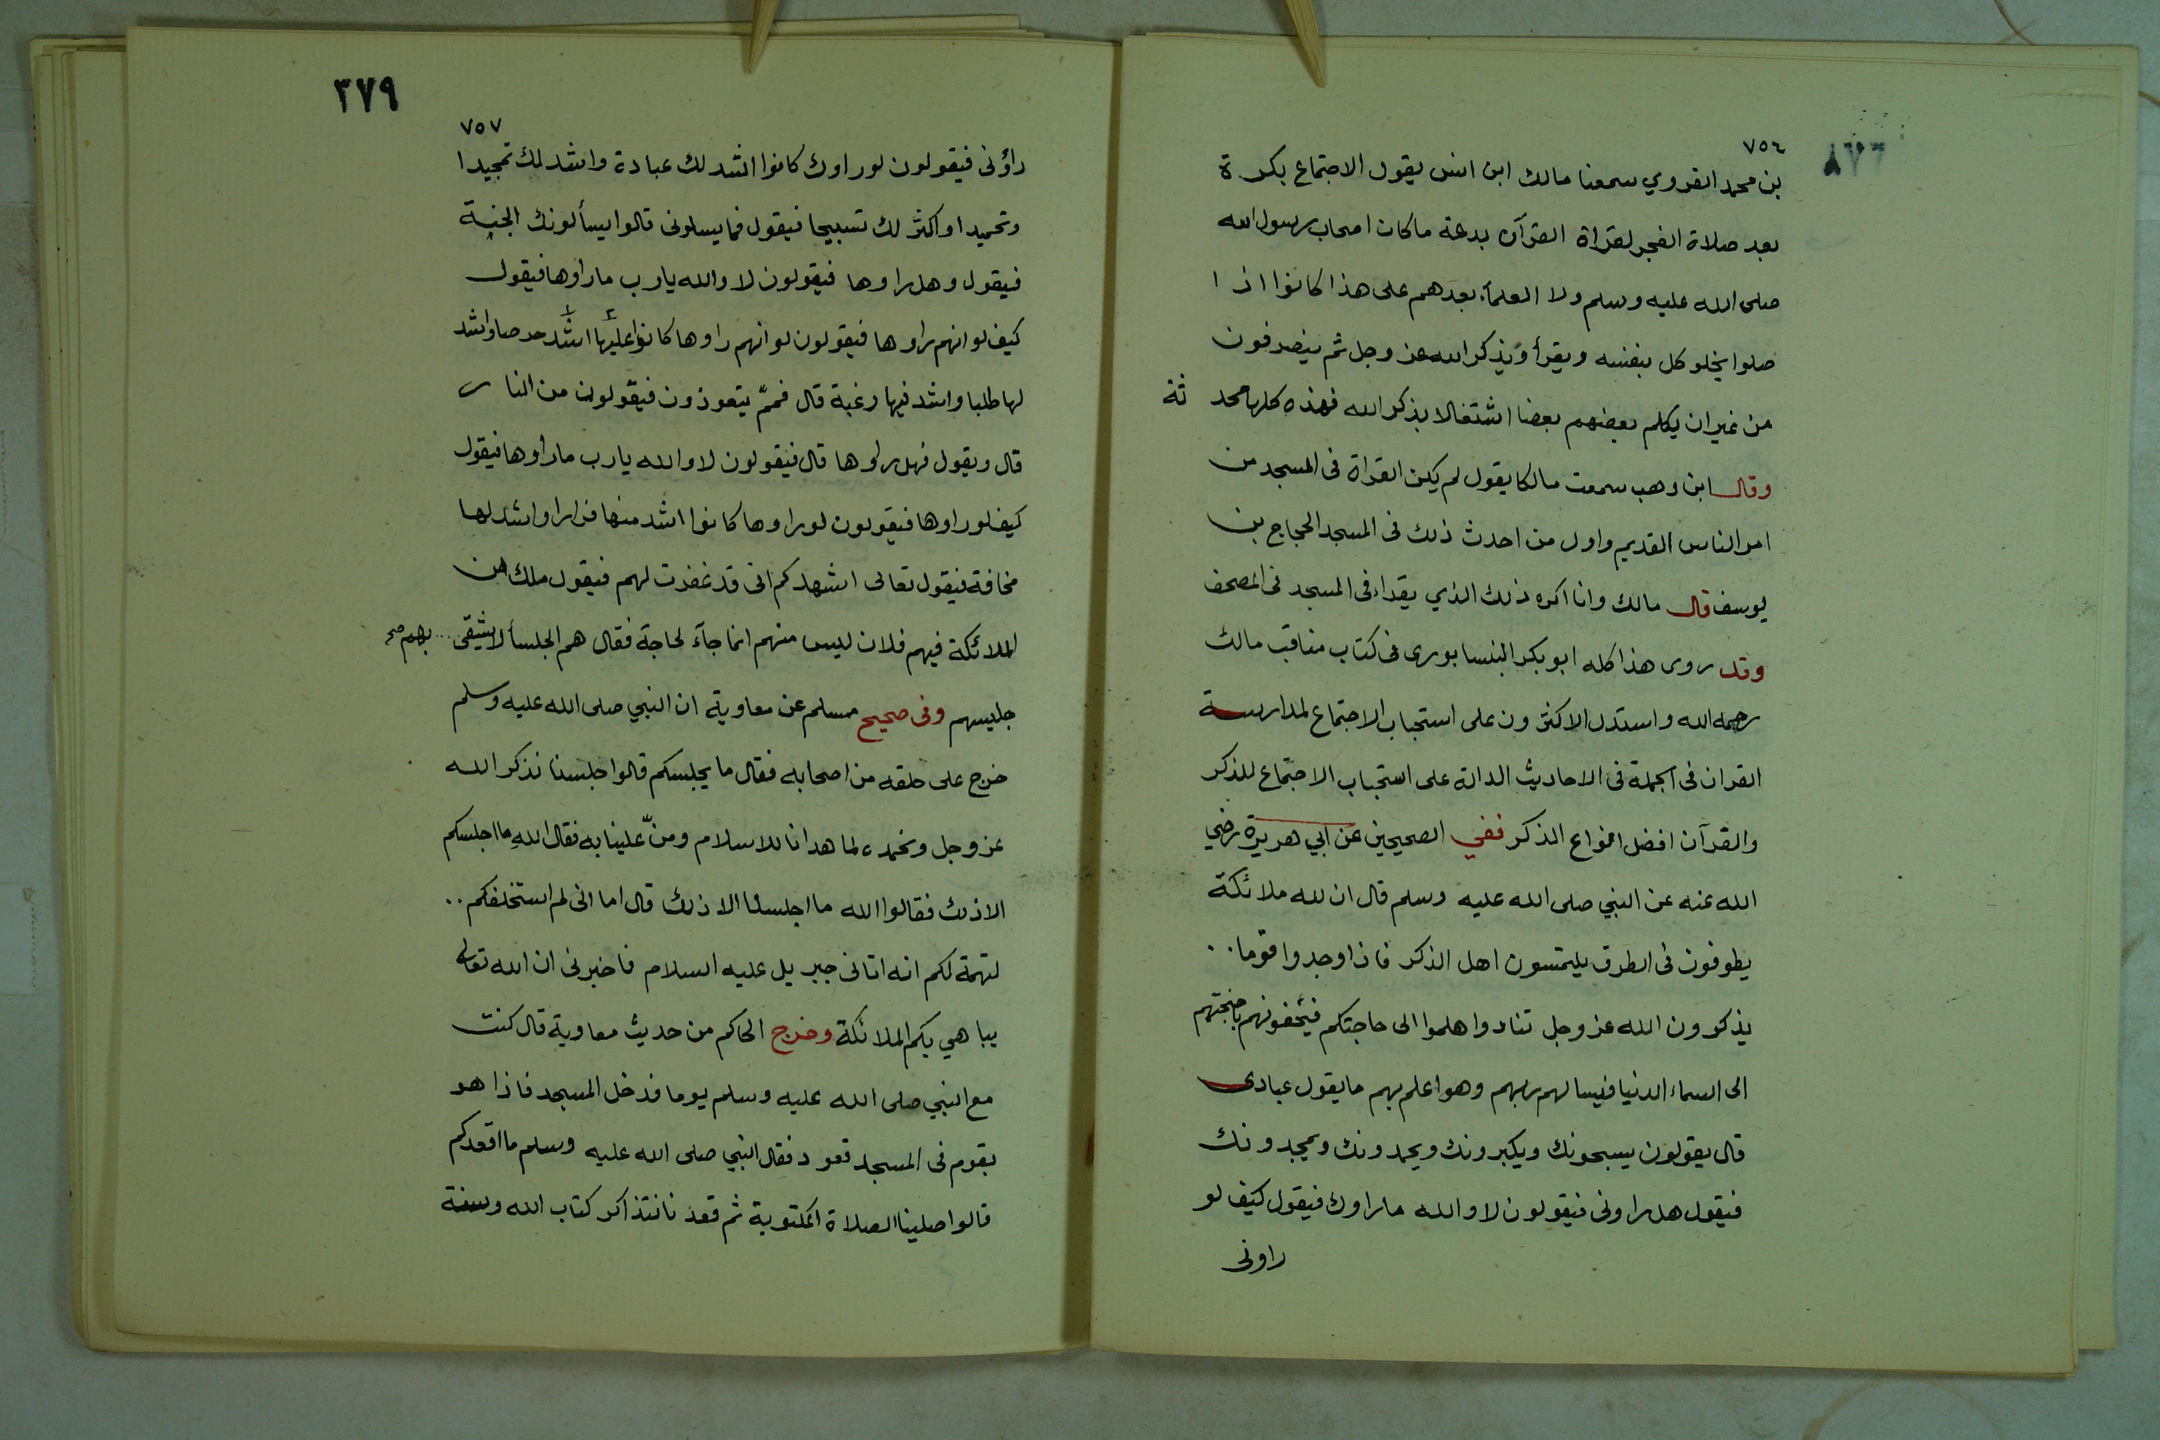 ٧٥٦
بن محمد القروي سمعنا مالك ابن انس يقول الاجتماع بكرة
بعد صلاة الفجر لقراة القرآن بدعة ماكان اصحاب رسول الله
صلى الله عليه وسلم ولا العلمآء بعدهم على هذا كانوا اذا
صلوا يخلو كل بنفسه ويقرأ ويذكر الله عز وجل ثم ينصرفون
من غير ان يكلم بعضهم بعضا اشتغالا بذكر الله فهذه كلها محد ثة
وقال ابن وهب سمعت مالكا يقول لم يكن القراة فى المسجد من
امر الناس القديم واول من احدث ذلك فى المسجد الحجاج بن
يوسف قال مالك وانا اكره ذلك الذي يقراء فى المسجد فى المصحف
وقد روى هذا كله ابو بكر النيسابورى فى كتاب مناقب مالك
رحمه الله واستدل الاكثرون على استحباب الاجتماع لمدارسة
القران فى الجملة فى الاحاديث الدالة على استحباب الاجتماع للذكر
والقرآن افضل انواع الذكر ففي الصحيحين عن ابي هريرة رضي
الله عنه عن النبي صلى الله عليه وسلم قال ان لله ملائكة
يطوفون فى الطرق يلتمسون اهل الذكر فاذا وجدوا قوما ..
يذكرون الله عز وجل تنادوا هلموا الى حاجتكم فيحفونهم باجنحتهم
الى السماء الدنيا فيسالهم ربهم وهو اعلم بهم مايقول عبادى
قال يقولون يسبحونك ويكبرونك ويحمدونك ويمجدونك
فيقول هل راونى فيقولون لا والله ماراوك فيقول كيف لو
راونى
٣٧٩
٧٥٧
راؤنى فيقولون لوراوك كانوا اشد لك عبادة واشد لك تمجيدا
وتحميدا واكثر لك تسبيحا فيقول فمايسلونى قالوا يسألونك الجنة
فيقول وهل راوها فيقولون لا والله يارب مارأوها فيقول
كيف لو انهم راوها فيقولون لو انهم راوها كانوا عليها اشد حرصا واشد
لها طلبا واشد فيها رغبة قال فممّ يتعوذون فيقولون من النار
قال ويقول فهل راوها قال فيقولون لا والله يارب مارأوها فيقول
كيف لوراوها فيقولون لوراوها كانوا اشد منها فرارا واشد لها
مخافة فيقول تعالى اشهدكم انى قد غفرت لهم فيقول ملك من
الملائكة فيهم فلان ليس منهم انما جآء لحاجة فقال هم الجلسأ لا يشقى .. بهم صح
جليسهم وفى صحيح مسلم عن معاوية ان النبي صلى الله عليه وسلم
خرج على حلقه من اصحابه فقال ما يجلسكم قالوا جلسنا نذكر الله
عز وجل ونحمده لما هدانا للاسلام ومنّ علينا به فقال اللهِ ما اجلسكم
الا ذلك فقالوا الله ما اجلسنا الا ذلك قال اما انى لم استحلفكم ..
لتهمة لكم انه اتانى جبريل عليه السلام فاخبرنى ان الله تعالى
يباهي بكم الملائكة وخرج الحاكم من حديث معاوية قال كنت
مع النبي صلى الله عليه وسلم يوما فدخل المسجد فاذا هو
بقوم فى المسجد قعود فقال النبي صلى الله عليه وسلم ما اقعدكم
قالوا صلينا الصلاة المكتوبة ثم قعدنا نتذاكر كتاب الله وسنة